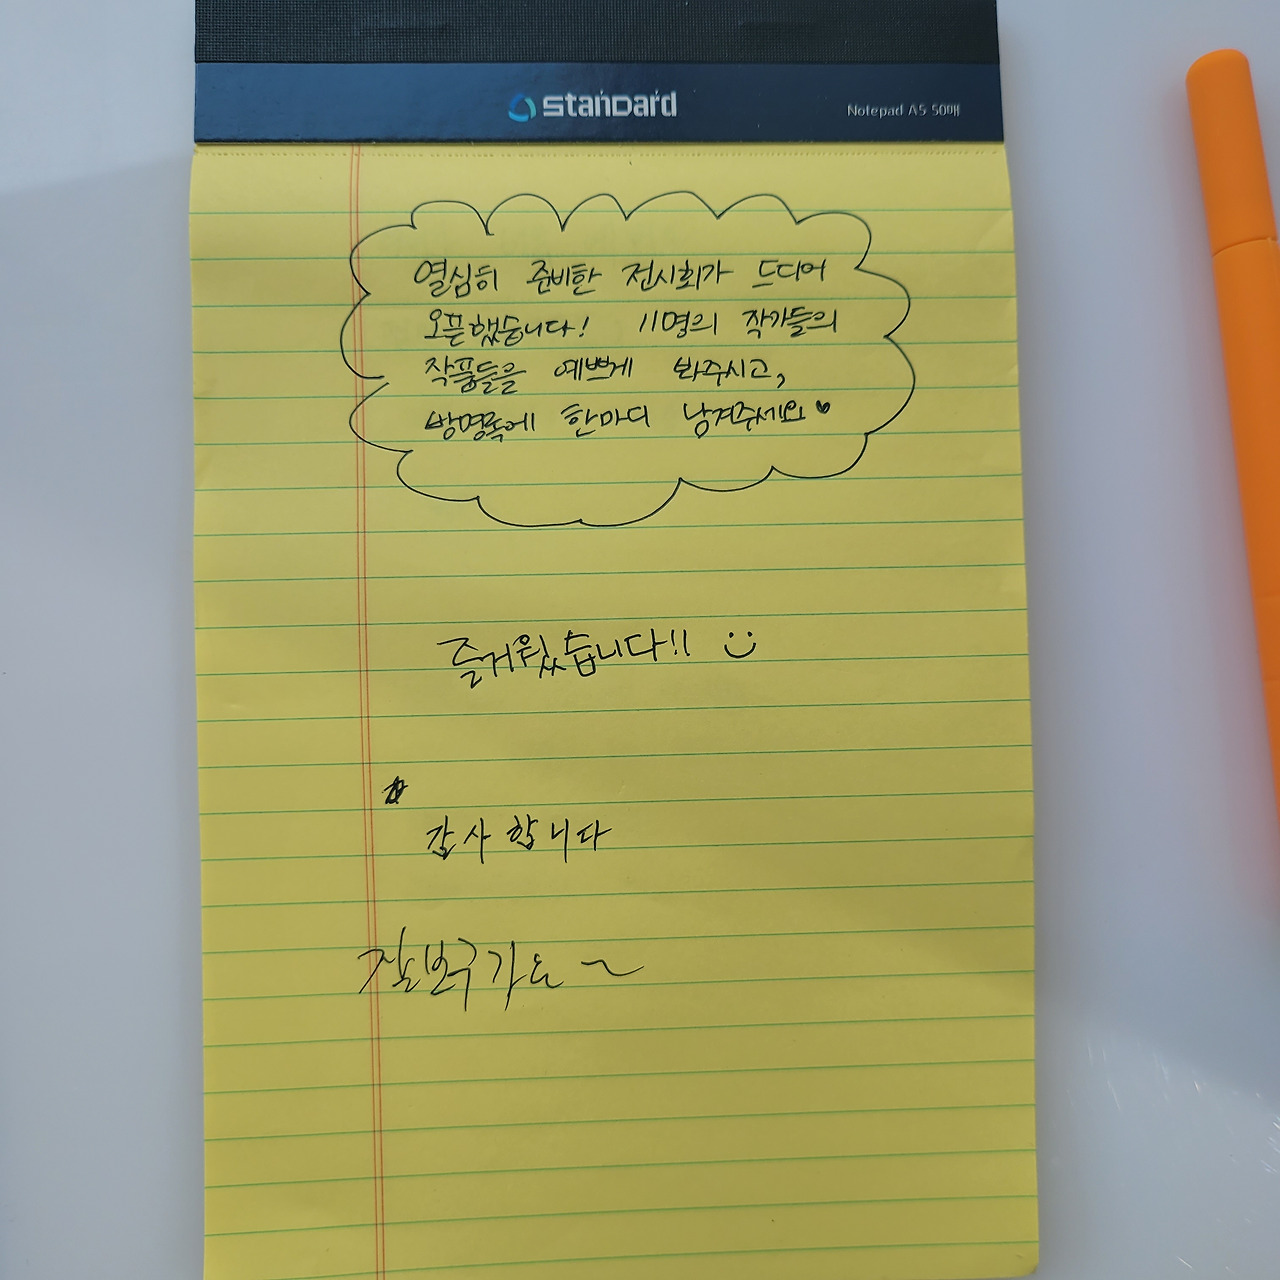 standard
Notepad A5 50매
열심히 준비한 전시회가 드디어
오픈했습니다! 11명의 작가들의
작품들을 예쁘게 봐주시고,
방명록에 한마디 남겨주세요♥
즐거웠습니다!! :)
감사합니다
잘보구가요~